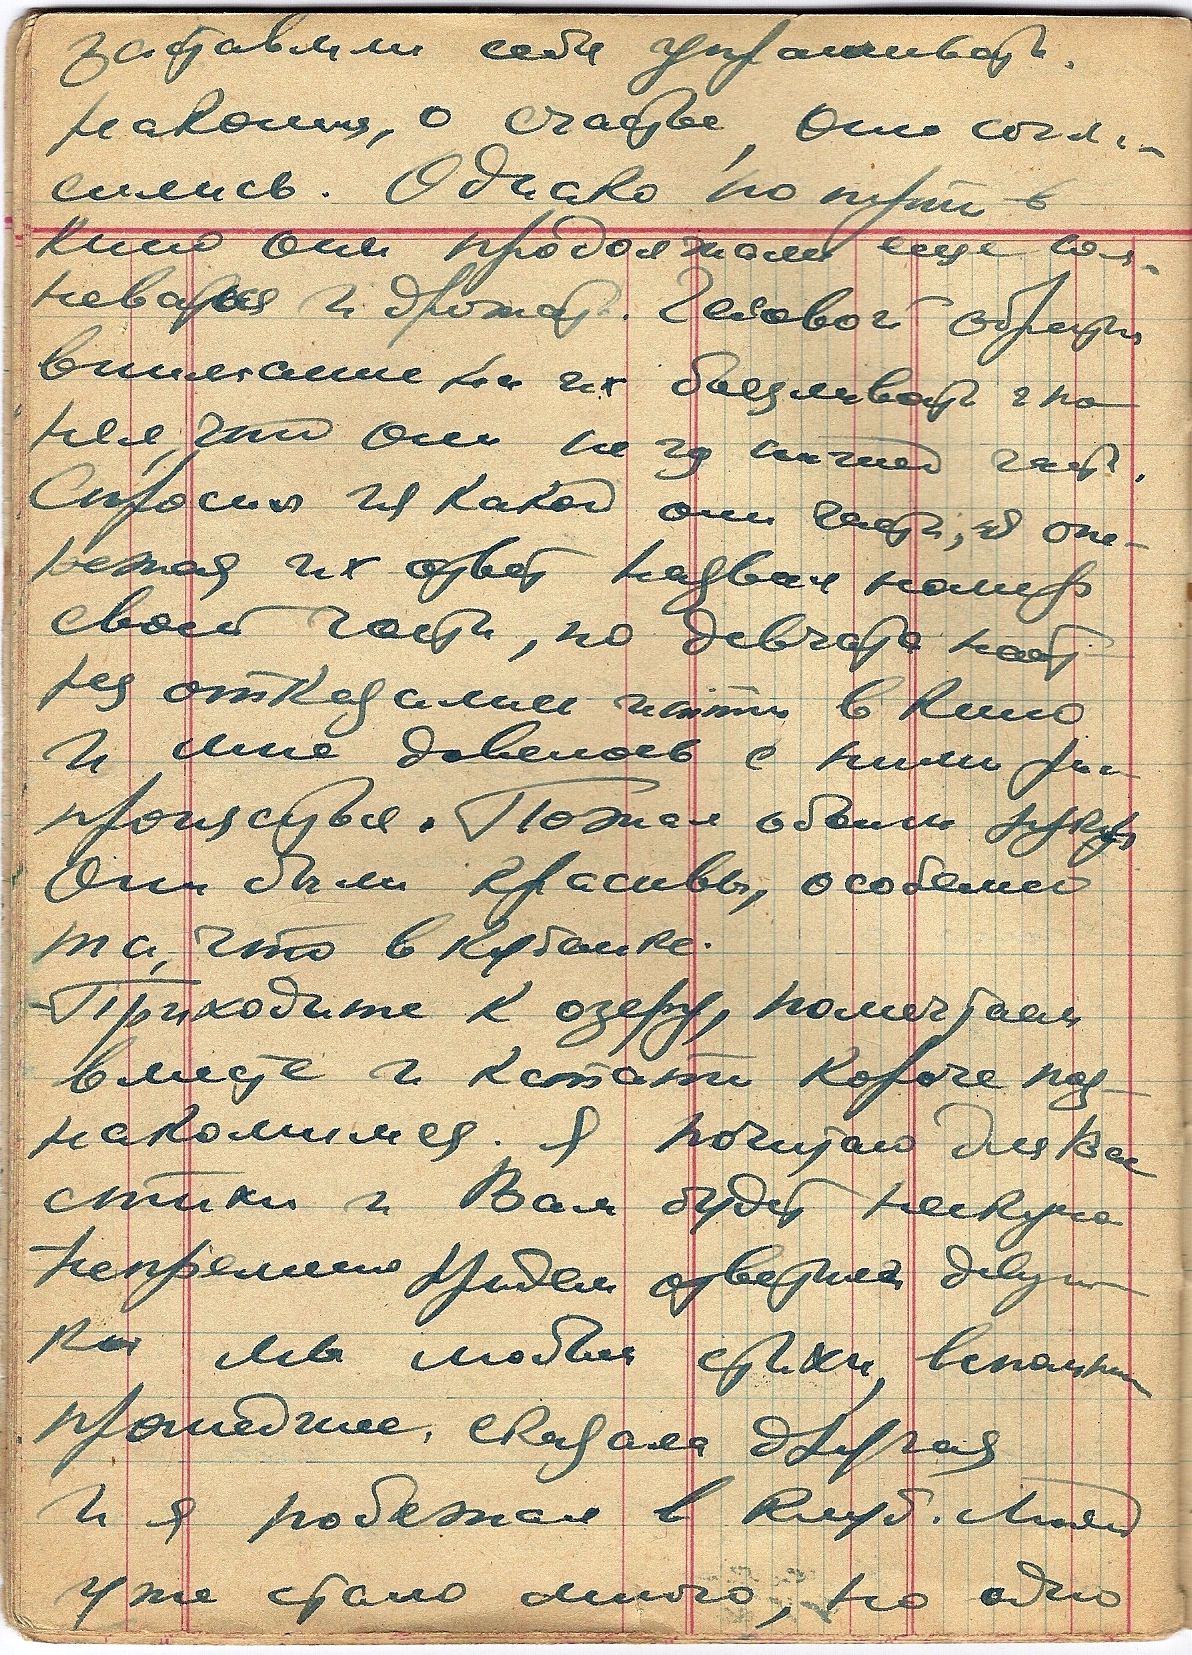 заставили себя упрашивать.
наконец, о счастье, они согла-
сились. Однако по пути в
кино они продолжали еще сом-
неваться и дрожать. Часовой обратил
внимание на их боязливость и по
нял, что они не из нашей части.
Спросил из какой они части, я опе-
режая их ответ назвал номер
своей части, но девчата наот-
рез отказались итти в кино
и мне довелось с ними рас
прощаться. Пожал обеим руку
Они были красивы, особенно
та, что в кубанке.
-Приходите к озеру, помечтаем
вместе и кстати короче поз-
накомимся. Я почитаю для Вас
стихи и Вам будет нескучно
непременно придем ответили девуш-
ки мы любим стихи, вспомним
прошедшее, сказала другая
и я побежал в клуб. Людей
уже стало много, но одно